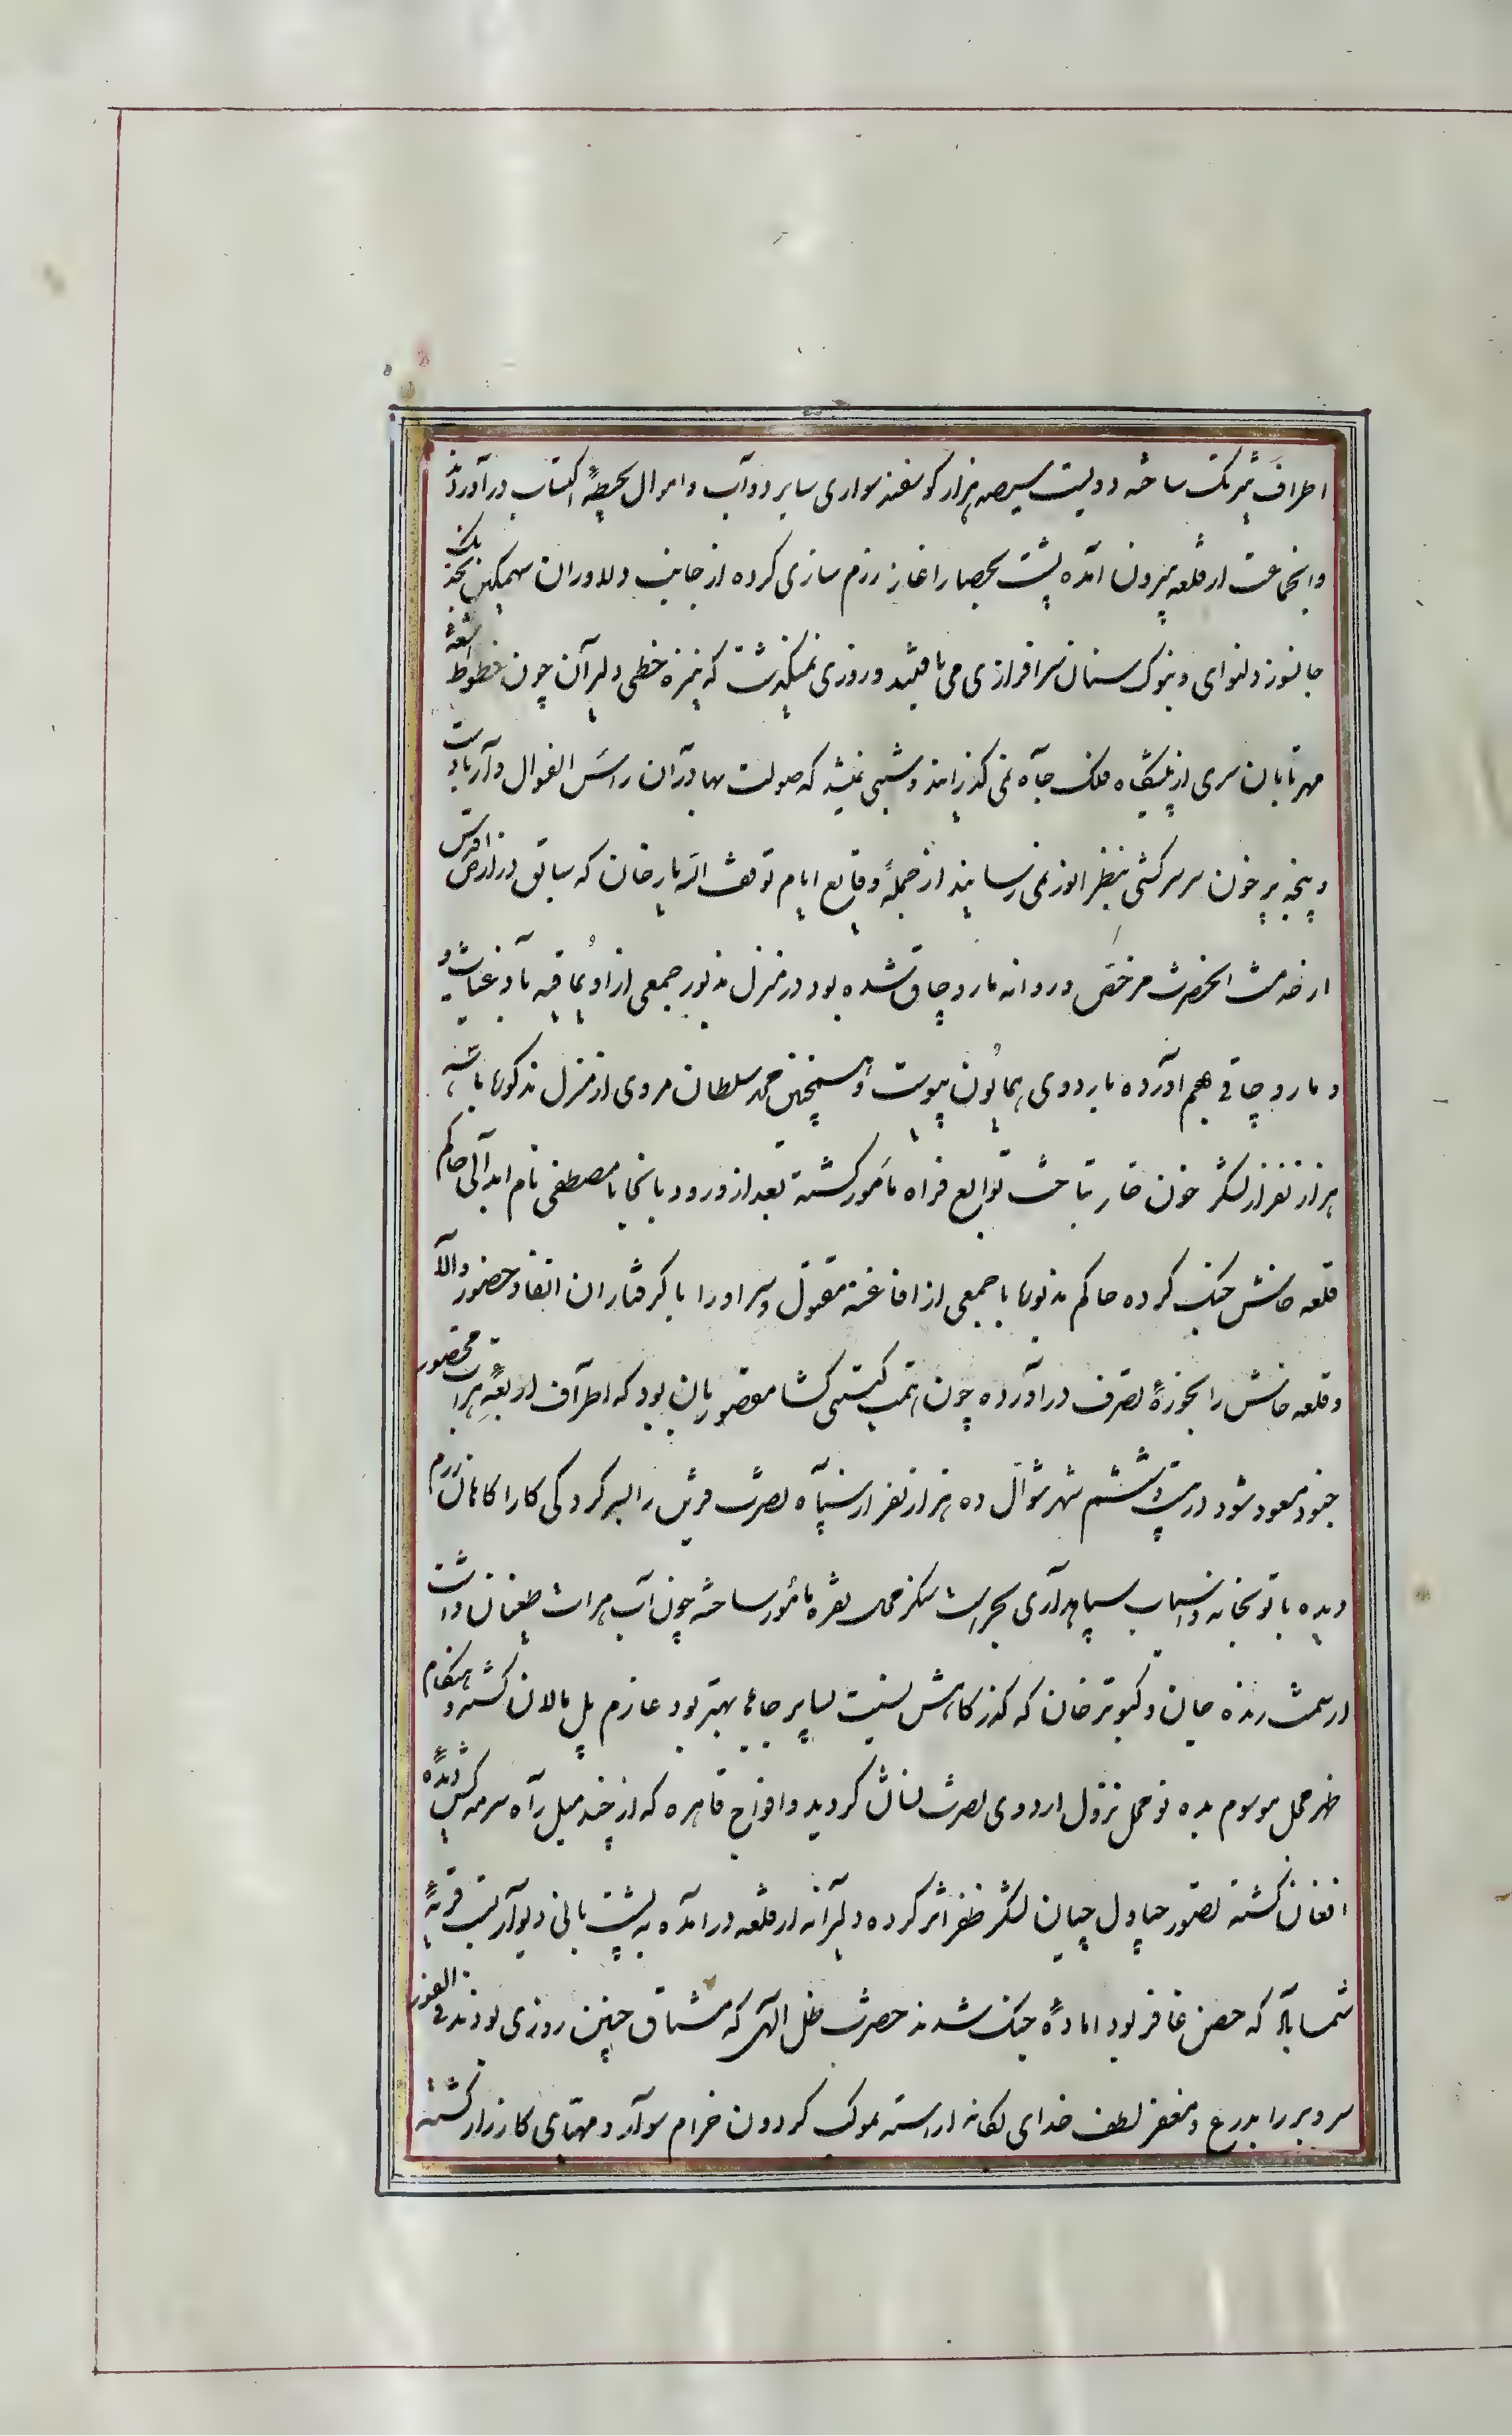 اطراف شریک ساخته دویست سیصد هزار گوسفند سوای سایر دوآب و اموال بحیطهٔ اکتساب در آوردند
و انجماعت از قلعه بیرون آمده پشت بحصار اغاز رزم سازی کرده از جانب دلاوران سهمگین بخدنگ
جانسوز دلنوای و بنوک سنان سرافرازی می یافتند و روزی نمیگذشت که نیزه خطی دلیرآن چون خطوط اشعهٔ
مهر تابان سری از پیشگاه فلک جآه نمی گذرانند و شبی نمیشد که صولت بهادرآن راس الغوال و آرباب دست
و پنجه بر خون سر سرکشی بنظر انور نمی رسانید از جملهٔ وقایع ایام توقف اله یار خان که سابق در ارض اقدس
از خدمت انحضرت مرخص و روانه ماروچاق شده بود در منزل مذبور جمعی از اویماقیه بادغیسات و
و ماروچاق هم آورده باردوی همایون پیوست و همچنین محمد سلطان مروی از منزل مذکور با سه
هزار نفر از لشکر خون خار بتاخت توابع فراه مامور گشته بعد از ورود بانجا با مصطفی نام ابدآلی حاکم
قلعه خاش جنک کرده حاکم مذبور با جمعی از افاغنه مقتول و سر او را با گرفتاران انفاد حضور والا
و قلعه خاش را بحوزهٔ تصرف در آورده چون همت گیتی گشا مقصور بان بود که اطرآف اربعهٔ هرات محصور
جنود مسعود شود در بیست و ششم شهر شوآل ده هزار نفر از سپآه نصرت قرین را بسرکردگی کاراگاهان رزم
دیده با توپخانه و اسباب سپاهدآری بحراست سنگر محل نقره مأمور ساخته چون آب هرات طغیان داشت
از سمت رنده جان و کبوتر خان که گذرگاهش نسبت بسایر جاها بهتر بود عازم پل مالان گشته و هنگام
ظهر محل موسوم بده نو محل نزول اردوی نصرت نشان گردید و افواج قاهره که از چند میل رآه سرمه کش دیدهٔ
افغان گشته تصور چپاول چیان لشکر ظفر اثر کرده دلیرآنه از قلعه در آمده به پشت بانی دیوآر بست قریهٔ
شمسآباد که حصن غافر بود امادهٔ جنک شدند حضرت ظل الهی که مشتاق چنین روزی بودند فی الفور
سر و بر را بدرع و مغفر لطف خدای یگانه اراسته بموکب گردون خرام سوآر و مهیای کارزار گشته